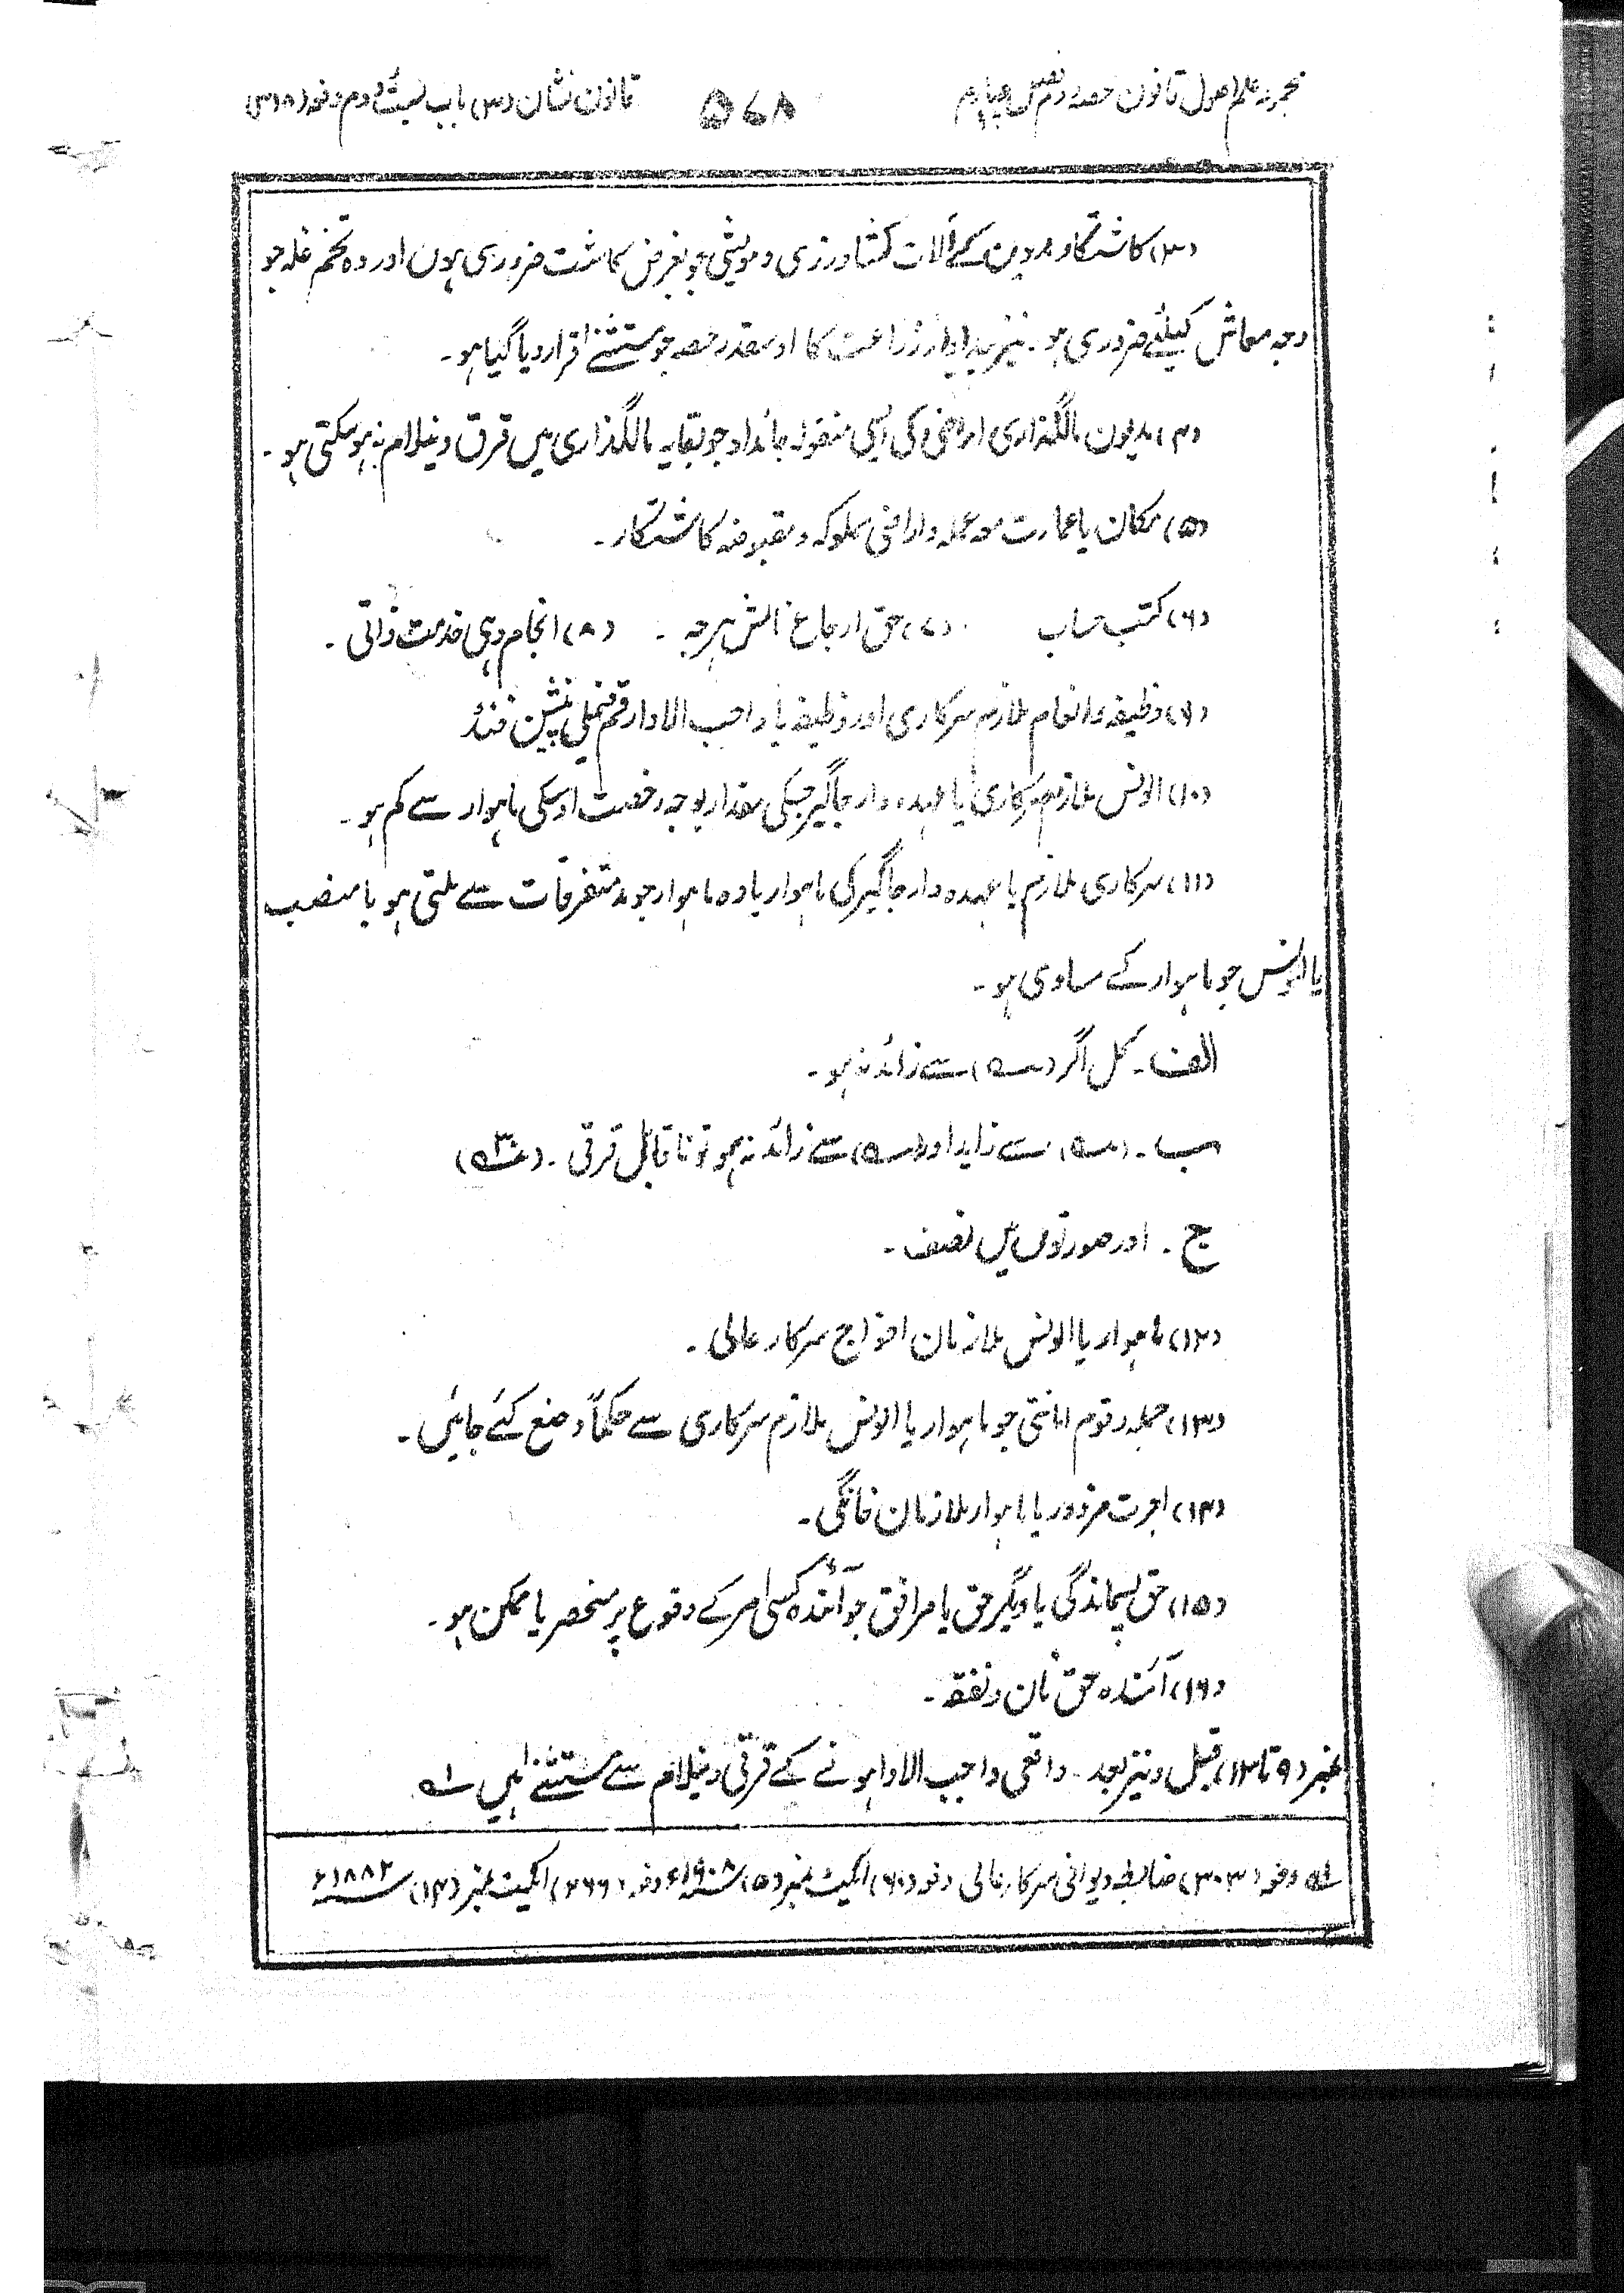 مجموعہ علم اصول قانون حصہ دوم فصل چہارم ۵۷۸ قانون نشان (۳) باب بست و دوم دفعہ (۳۱۸)
(۳) کاشتکار مدیون کے آلات کشاورزی و مویشی جو بغرض کاشت ضروری ہوں اور وہ تخم غلہ جو
وجہ معاش کیلئے ضروری ہو۔ نیز پیداوار زراعت کا اوسقدر حصہ جو مستثنےٰ قرار دیا گیا ہو۔
(۴) مدیون مالگذاری اراضی کی ایسی منقولہ جائداد جو بقایہ مالگذاری میں قرق و نیلام نہ ہوسکتی ہو۔
(۵) مکان یا عمارت معہ عملہ و اراضی مملوکہ و مقبوضہ کاشتکار۔
(۶) کتب حساب (۷) حق ارجاع نالش ہرجہ۔ (۸) انجام دہی خدمت ذاتی۔
(۹) وظیفہ و انعام ملازم سرکاری اور وظیفہ یا واجب الادا رقم فیملی پنشن فنڈ
(۱۰) الونس ملازم سرکاری یا عہدہ دار جاگیر جسکی مقدار بوجہ رخصت اوسکی ماہوار سے کم ہو۔
(۱۱) سرکاری ملازم یا عہدہ دار جاگیر کی ماہوار یا وہ ماہوار جو مد متفرقات سے ملتی ہو یا منصب
یا الونس جو ماہوار کے مساوی ہو۔
الف۔ کل اگر سے زائد نہ ہو۔
ب۔ سے زاید اور سے زائد نہ ہو تو ناقابل قرقی۔
ج۔ اور صورتوں میں نصف۔
(۱۲) ماہوار یا الونس ملازمان افواج سرکار عالی۔
(۱۳) جملہ رقوم امانتی جو ماہوار یا الونس ملازم سرکاری سے حکماً وضع کئے جائیں۔
(۱۴) اجرت مزدور یا ماہوار ملازمان خانگی۔
(۱۵) حق پسماندگی یا دیگر حق یا مرافق جو آئندہ کسی امر کے وقوع پر منحصر یا ممکن ہو۔
(۱۶) آئندہ حق نان و نفقہ۔
نمبر (۹ تا ۱۲) قبل و نیز بعد۔ واقعی واجب الادا ہونے کے قرقی و نیلام سے مستثنےٰ ہیں ۱؎
۱؎ دفعہ (۳۰۳) ضابطہ دیوانی سرکار عالی دفعہ (۶۰) ایکٹ نمبر (۵) ۱۹۰۸ء دفعہ (۲۶۶) ایکٹ نمبر (۱۴) ۱۸۸۲ء